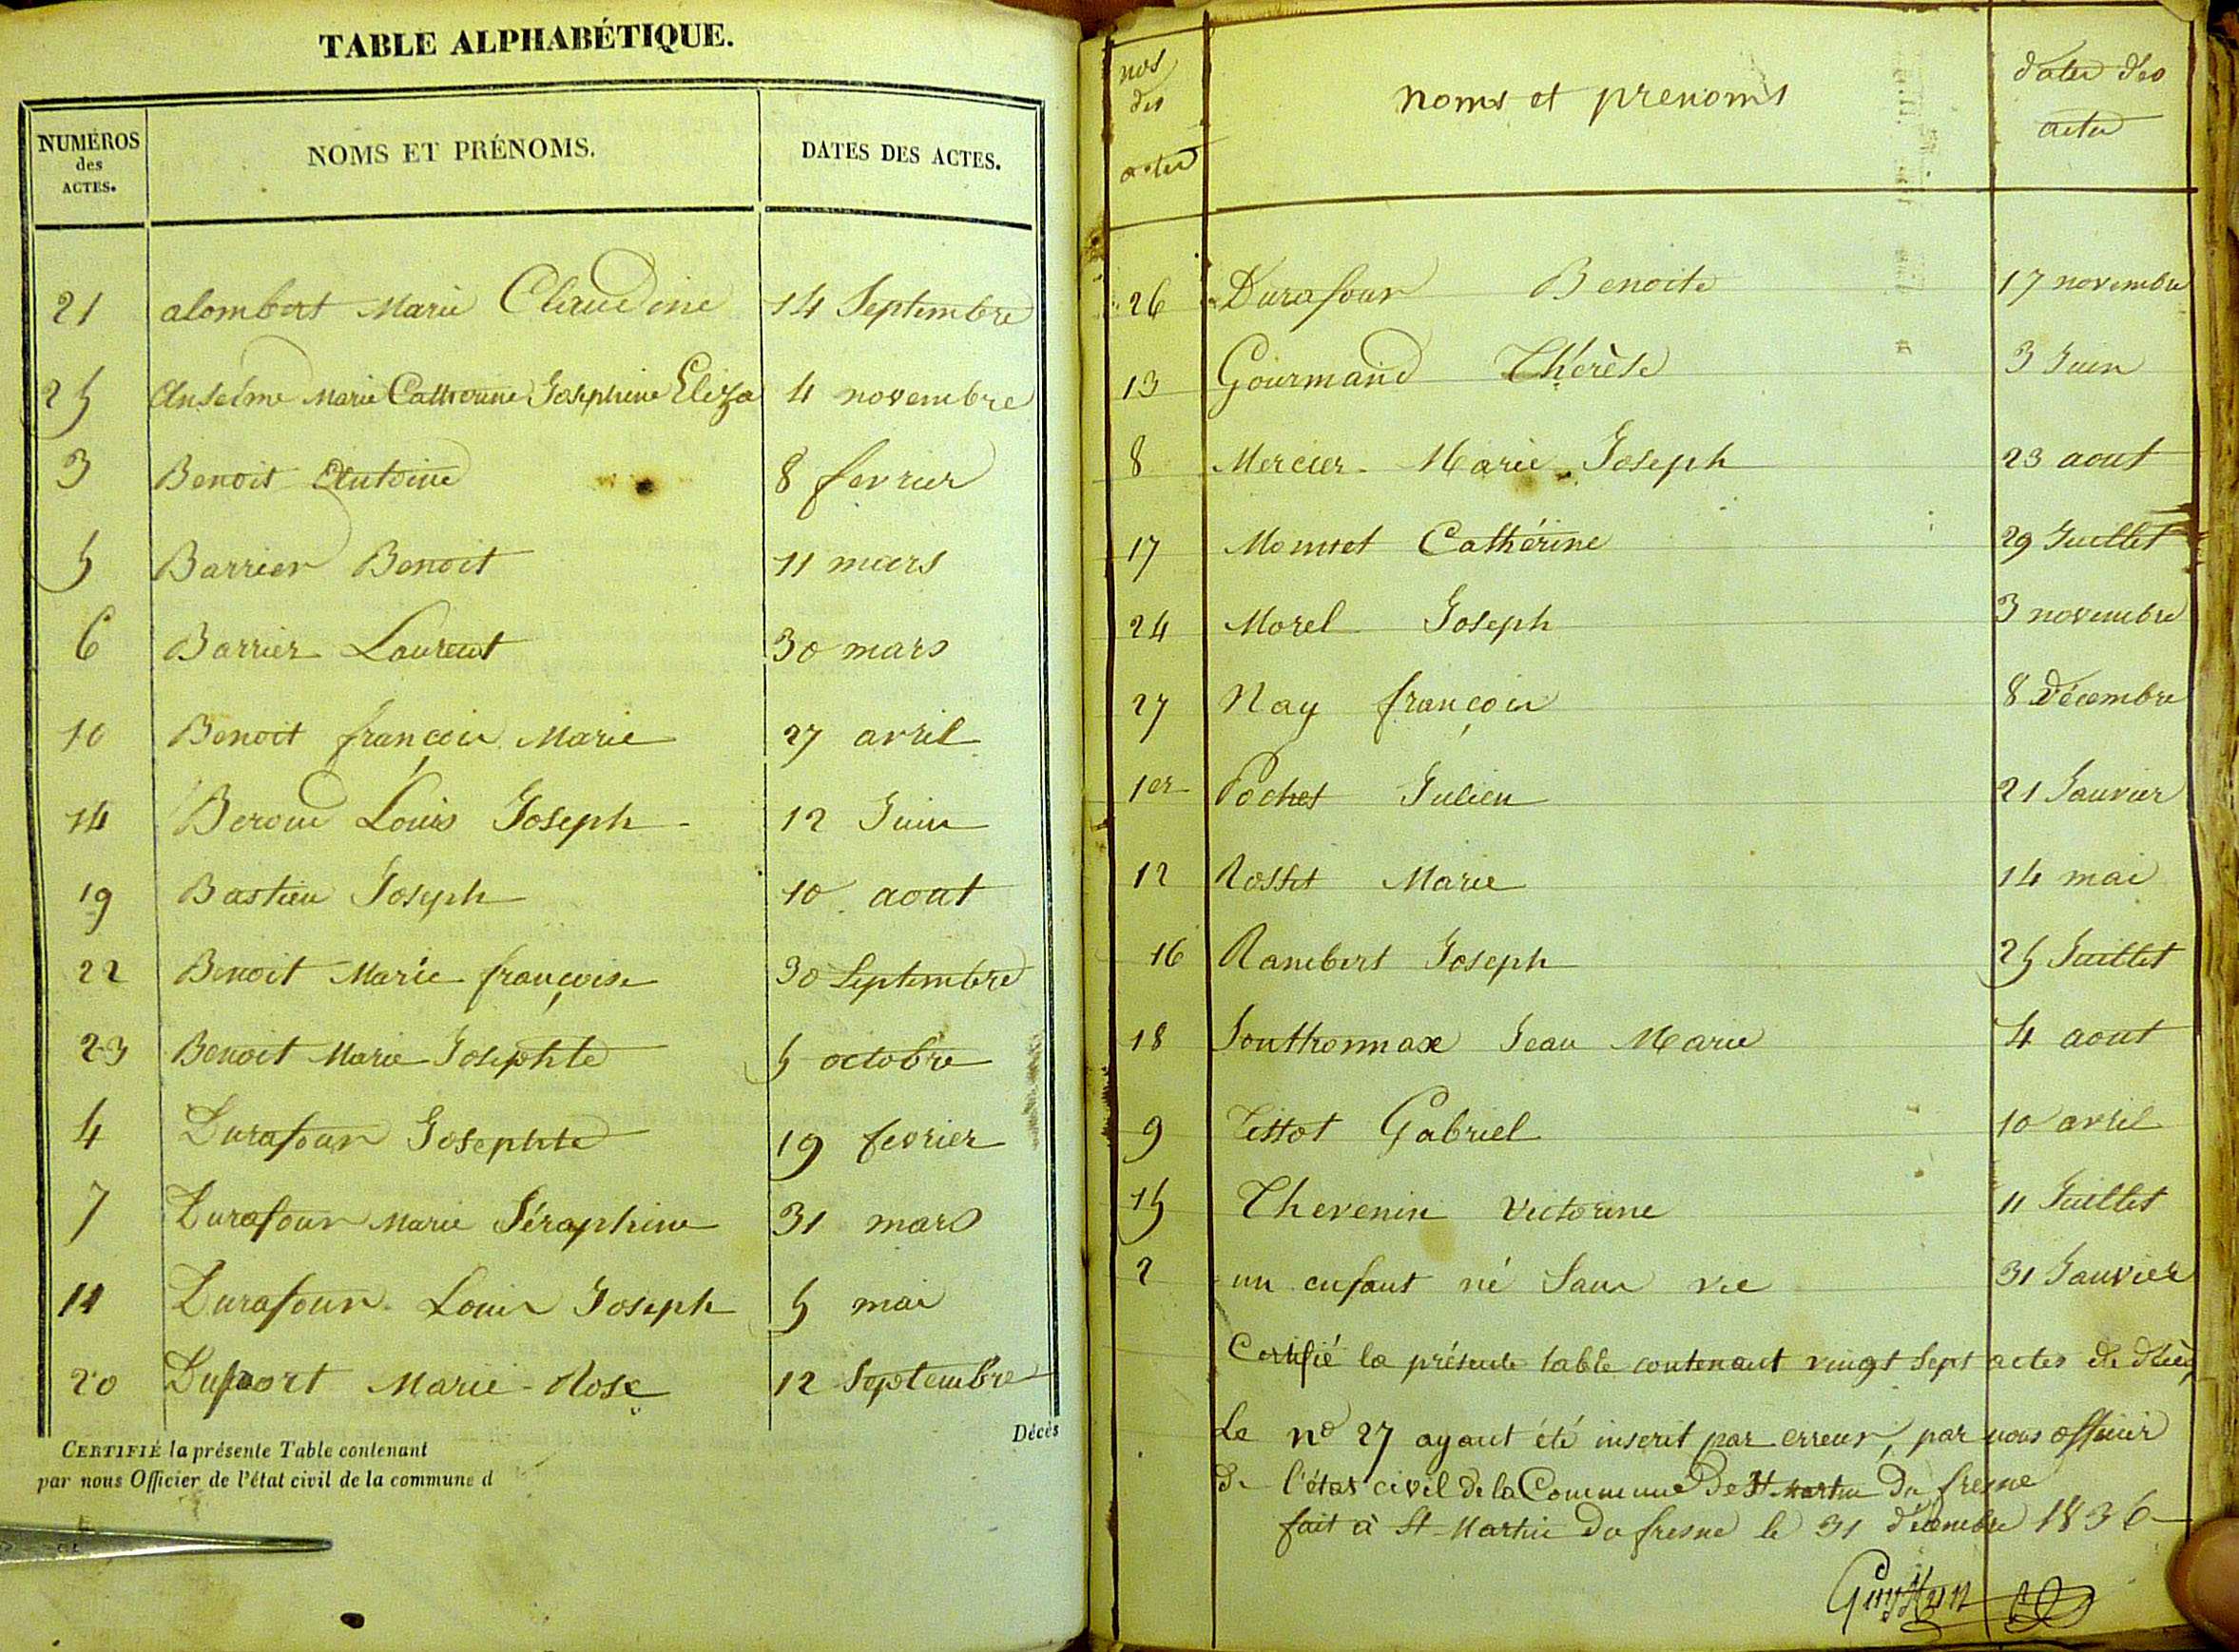 TABLE ALPHABÉTIQUE.
NUMÉROS
des
ACTES.
NOMS ET PRÉNOMS.
DATES DES ACTES.
21 alombert Marie Claudine 14 Septembre
25 Anselme Marie Catherine Josephine Eliza 4 novembre
3 Benoit Antoine 8 fevrier
5 Barrier Benoit 11 mars
6 Barrier Laurent 30 mars
10 Benoit françois Marie 27 avril
14 Beroud Louis Joseph 12 Juin
19 Bastien Joseph 10 aout
22 Benoit Marie françoise 30 Septembre
23 Benoit Marie Josephte 5 octobre
4 Durafour Josephte 19 fevrier
7 Durafour Marie Séraphine 31 mars
11 Durafour Louis Joseph 5 mai
20 Dupport Marie-Rose 12 Septembre
Décès
CERTIFIÉ la présente Table contenant
par nous Officier de l'état civil de la commune d
nos
des
actes
noms et prenoms
dates des
actes
26 Durafour Benoite 17 novembre
13 Gourmand Thérèse 3 Juin
8 Mercier Marie Joseph 23 aout
17 Catherine 29 Juillet
24 Morel Joseph 3 novembre
27 Nay françois 8 décembre
1er Pochet Julien 21 Janvier
12 Rosset Marie 14 mai
16 Rambert Joseph 25 Juillet
18 Southonnax Jean Marie 4 aout
9 Tissot Gabriel 10 avril
15 Thevenin victorine 11 Juillet
2 un enfant né sans vie 31 Janvier
Certifié la présente table contenant vingt sept actes de décès,
Le no 27 ayant été inscrit par erreur, par nous officier
de l'état civil de la Commune de St martin du fresne
fait à St-Martin du fresne le 31 décembre 1836